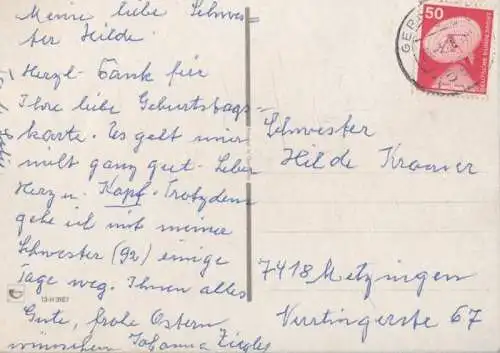 Meine liebe Schwes-
ter Hilde.
Herzl. Dank für
Ihre liebe Geburtstags-
karte. Es geht mir
nicht ganz gut. Leber
Herz u. Kopf. Trotzdem
gehe ich mit meiner
Schwester (92) einige
Tage weg. Ihnen alles
Gute, frohe Ostern
wünschen Johanna Ziegler
13-H 3167
50
DEUTSCHE BUNDESPOST
GER
Schwester
Hilde
7418 Metzingen
Nürtingerste 67